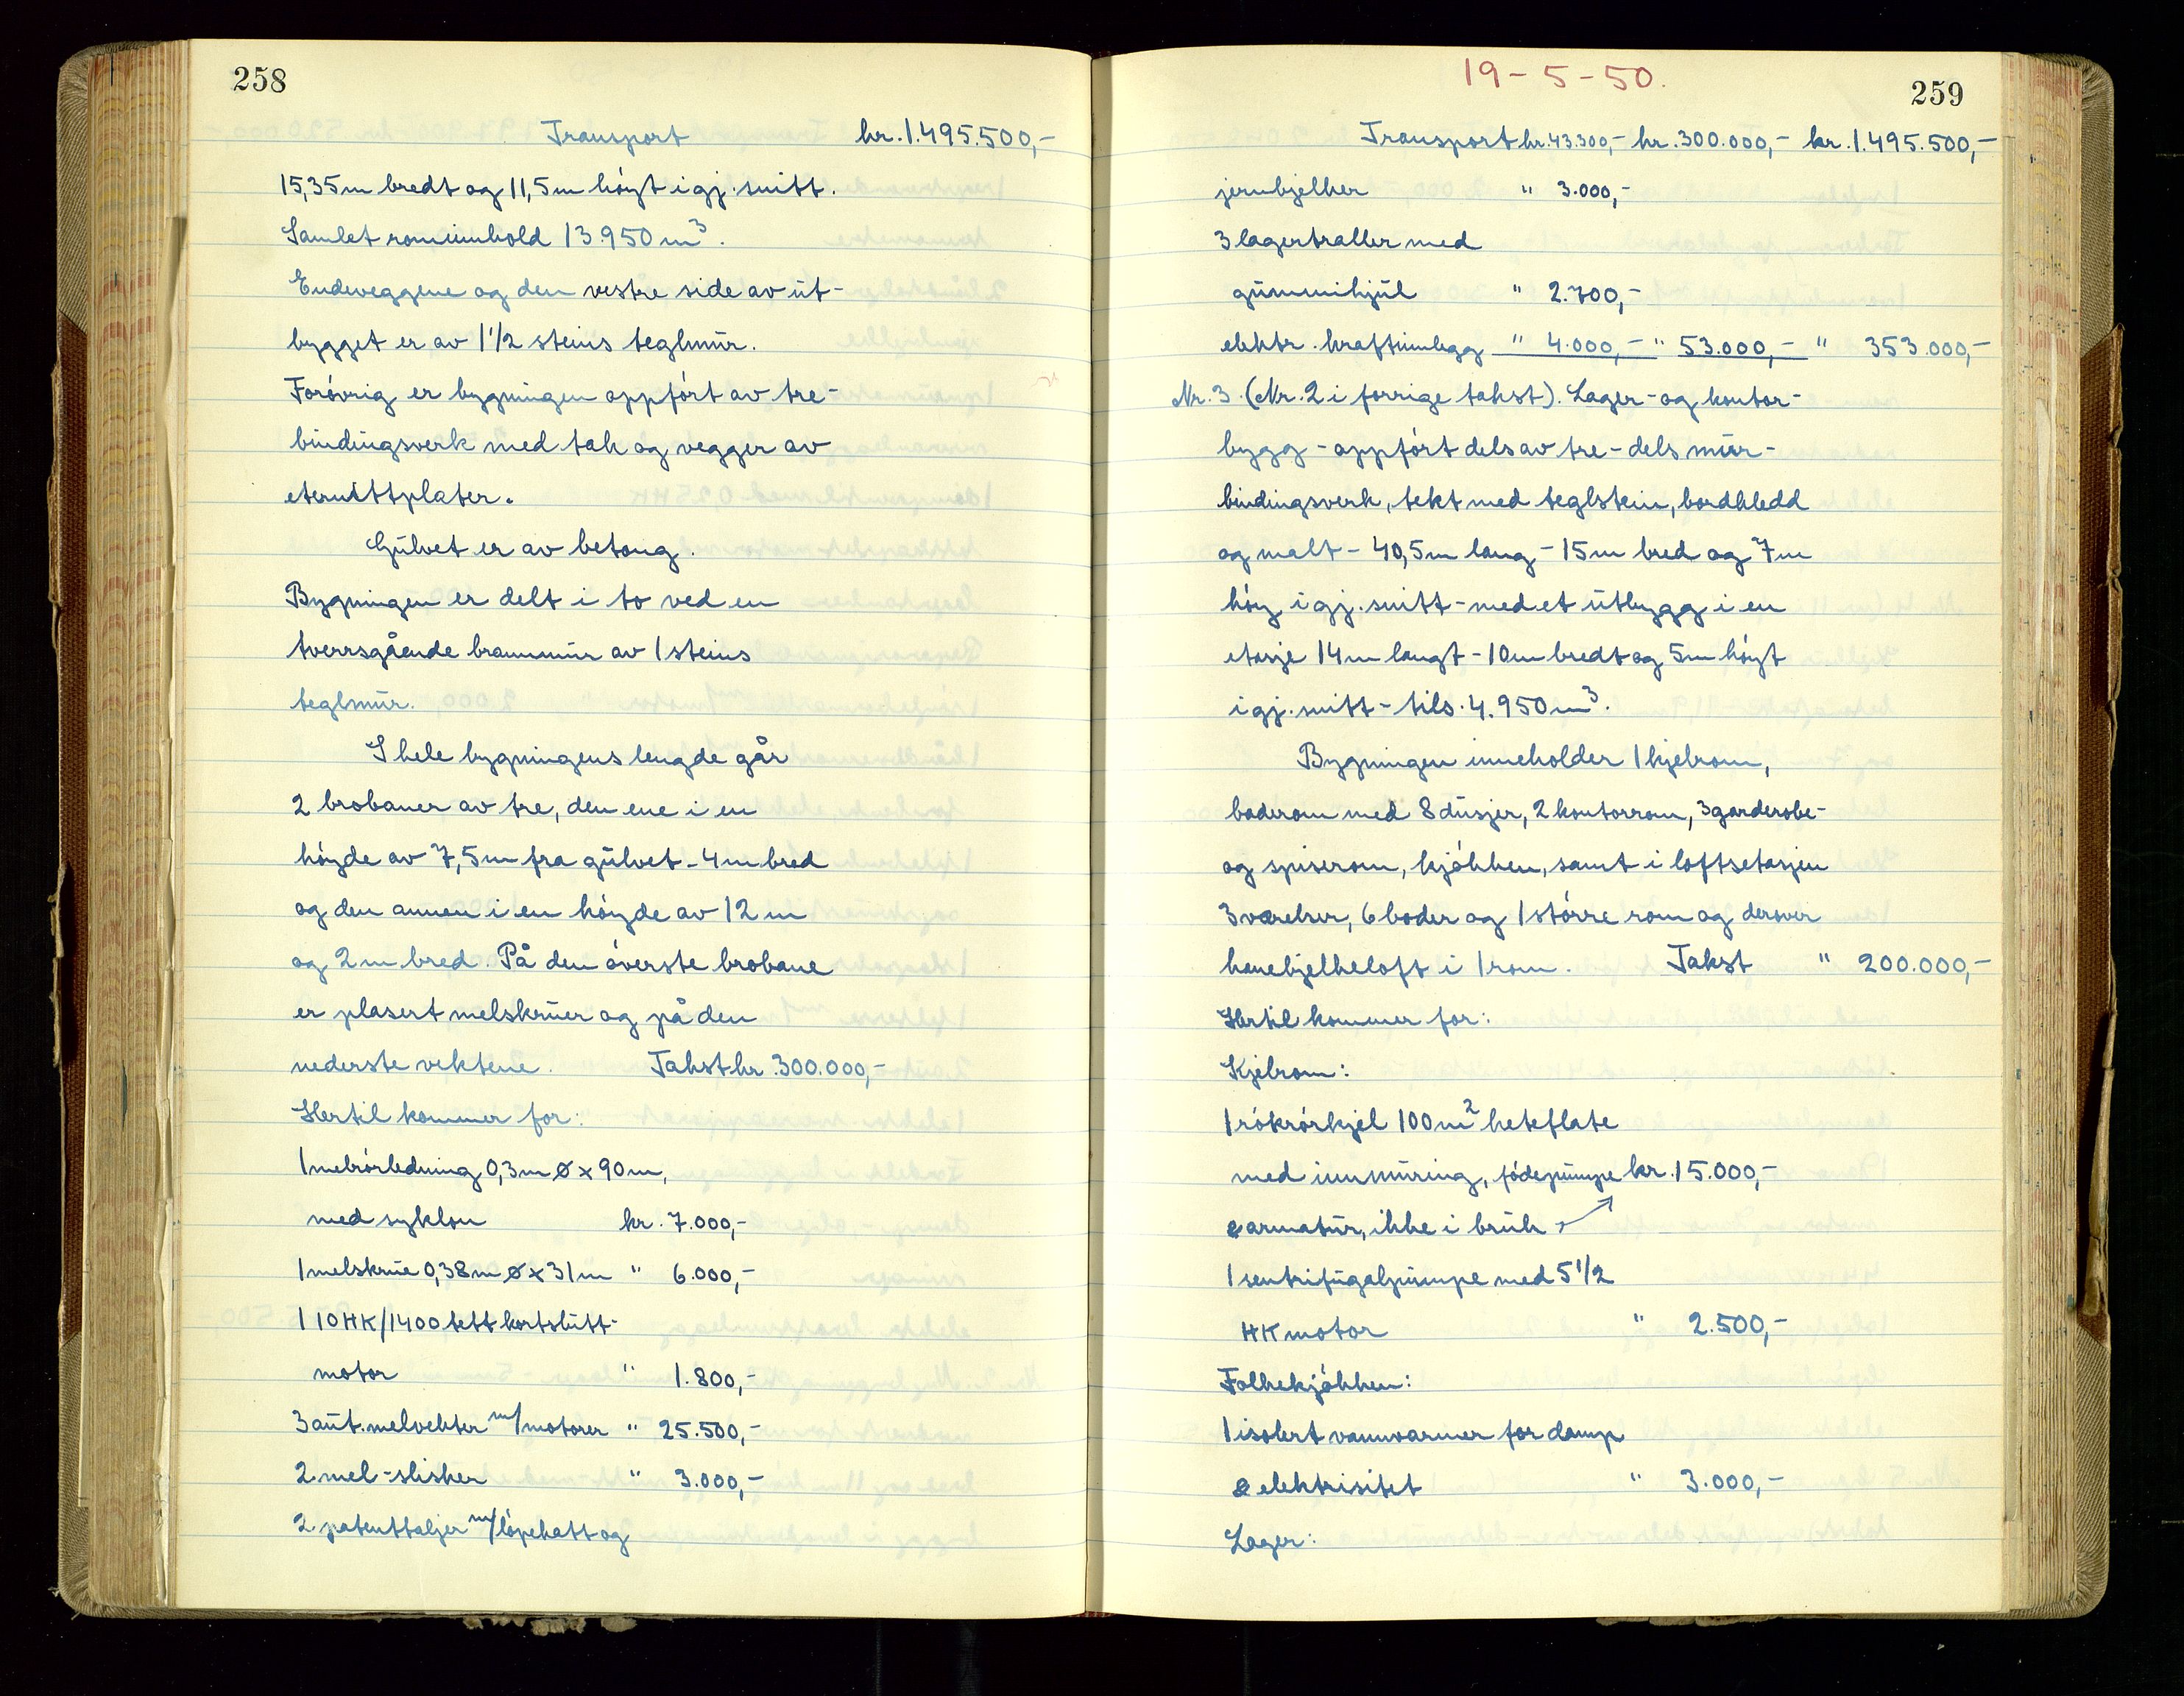 258
Transport kr. 1.495.500,-
15,35m bredt og 11,5m höyt i gj. snitt.
Samlet rominnhold 13950 m³.
Endeveggene og den vestre side av ut-
bygget er av 1 1/2 steins teglmur.
Forövrig er bygningen oppfört av tre-
bindingsverk med tak og vegger av
eternittplater.
Gulvet er av betong.
Bygningen er delt i to ved en
tverrsgående brannmur av 1 steins
teglmur.
I hele bygningens lengde går
2 brobaner av tre, den ene i en
höyde av 7,5m fra gulvet - 4m bred
og den annen i en höyde av 12m
og 2m bred. På den överste brobane
er plasert melskruer og på den
nederste vektene. Takst kr. 300.000,-
Hertil kommer for:
1 melrörledning 0,3m ø x 90m,
med syklon kr. 7.000,-
1 melskrue 0,38m ø x 31m " 6.000,-
1 10HK/1400 tett kortslutt-
motor " 1.800,-
3 aut. melvekter m/motorer " 25.500,-
2 mel-slisker " 3.000,-
2 patenttaljer m/löpekatt og
19-5-50.
259
Transport kr. 43.300,- kr. 300.000,- kr. 1.495.500,-
jernbjelker " 3.000,-
3 lagertraller med
gummihjul " 2.700,-
elektr. kraftinnlegg " 4.000,- " 53.000,- " 353.000,-
Nr. 3. (Nr. 2 i forrige takst). Lager- og kontor-
bygg - oppfört dels av tre - dels mur-
bindingsverk, tekt med teglstein, bordkledd
og malt - 40,5m lang - 15m bred og 7m
höy i gj. snitt - med et utbygg i en
etasje 14m langt - 10m bredt og 5m höyt
i gj. snitt - tils. 4.950 m³.
Bygningen inneholder 1 kjelrom,
baderom med 8 dusjer, 2 kontorrom, 3 garderobe-
og spiserom, kjökken, samt i loftsetasjen
3 værelser, 6 boder og 1 större rom og derover
hanebjelkeloft i 1 rom. Takst " 200.000,-
Hertil kommer for:
Kjelrom:
1 rökrörkjel 100 m² heteflate
med innmuring, födepumpe kr. 15.000,-
& armatur, ikke i bruk
1 sentrifugalpumpe med 5 1/2
HK motor " 2.500,-
Folkekjökken:
1 isolert vannvarmer for damp
& elektrisitet " 3.000,-
Lager: